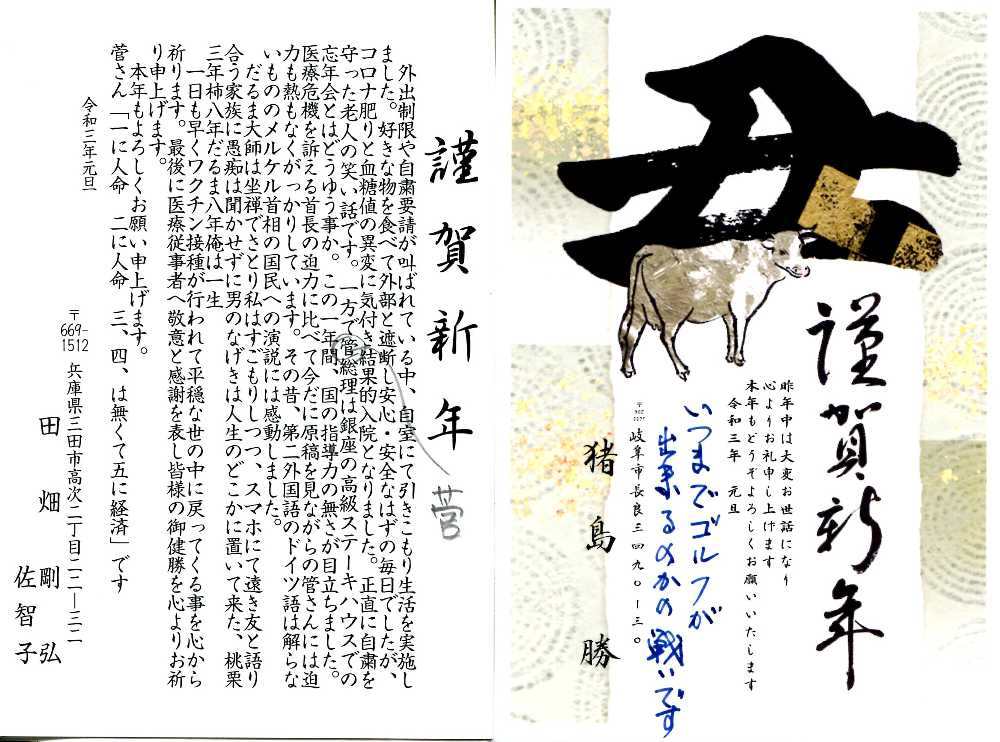 謹賀新年
外出制限や自粛要請が叫ばれている中、自室にて引きこもり生活を実施し
ました。好きな物を食べて外部と遮断し安心・安全なはずの毎日でしたが、
コロナ肥りと血糖値の異変に気付き結果的入院となりました。正直に自粛を
守った老人の笑い話です。一方で管総理は銀座の高級ステーキハウスでの
忘年会とはどうゆう事か。この一年間、国の指導力の無さが目立ちました。
医療危機を訴える首長の迫力に比べて今だに原稿を見ながらの管さんには迫
力も熱もなくがっかりしています。その昔、第二外国語のドイツ語は解らな
いもののメルケル首相の国民への演説には感動しました。
だるま大師は坐禅でさとり私はすごもりしつつ、スマホにて遠き友と語り
合う家族に愚痴は聞かせずに男のなげきは人生のどこかに置いて来た、桃栗
三年柿八年だるま八年俺は一生
一日も早くワクチン接種が行われて平穏な世の中に戻ってくる事を心から
祈ります。最後に医療従事者へ敬意と感謝を表し皆様の御健勝を心よりお祈
り申上げます。
本年もよろしくお願い申上げます。
管さん「一に人命　二に人命　三、四、は無くて五に経済」です
令和三年元旦
菅
〒669-1512
兵庫県三田市高次二丁目二二ー三二
田畑　剛弘
佐智子
丑
謹賀新年
昨年中は大変お世話になり
心よりお礼申し上げます
本年もどうぞよろしくお願いいたします
令和三年　元旦
いつまでゴルフが
出来るのかの戦いです
岐阜市長良三四九〇ー三〇
猪島　勝